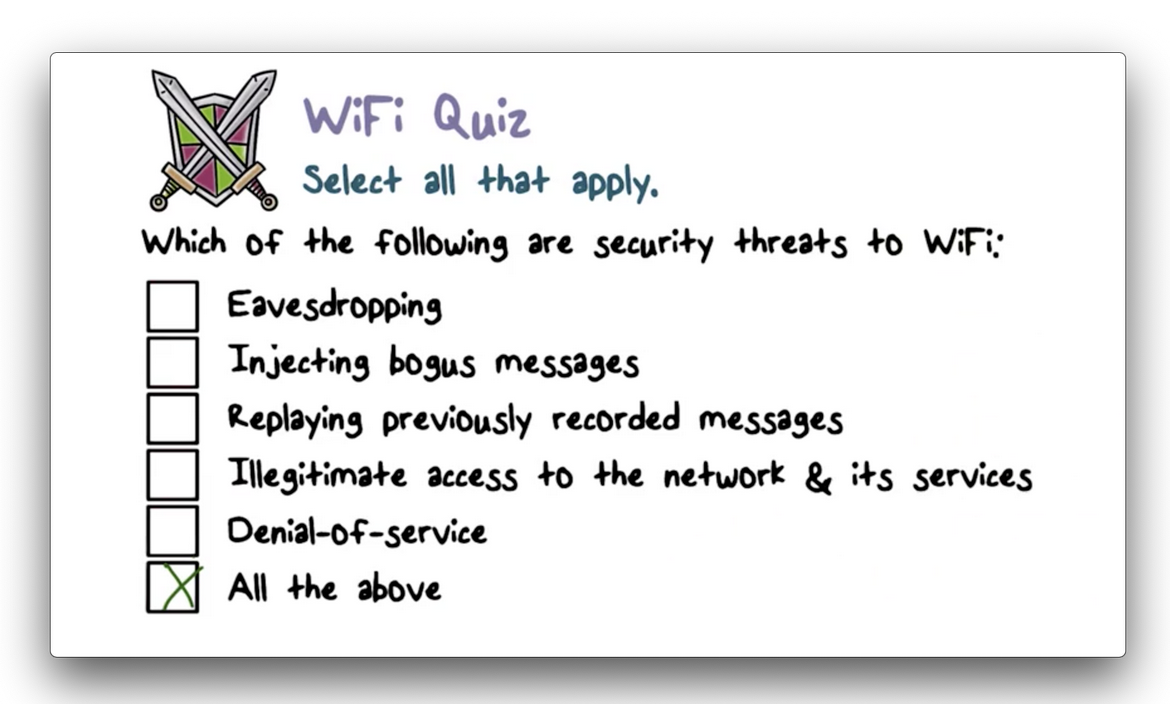 WiFi Quiz
Select all that apply.
Which of the following are security threats to WiFi:
Eavesdropping
Injecting bogus messages
Replaying previously recorded messages
Illegitimate access to the network & its services
Denial-of-service
All the above